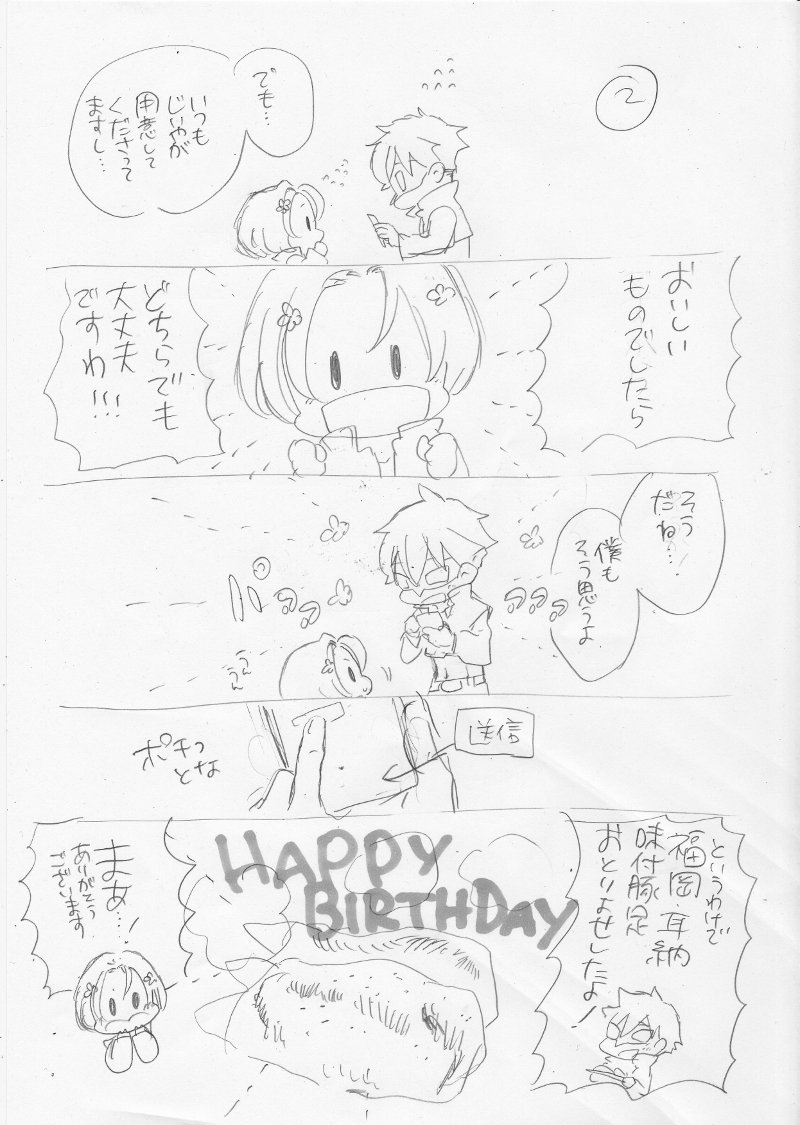 2
でも…
いつも
じいやが
用意して
くださって
ますし…
おいしい
ものでしたら
どちらでも
大丈夫
ですわ!!!
そう
だね…!
僕も
そう思うよ
パァァ
ァァァ
うん
うん
送信
ポチっ
とな
というわけで
福岡・耳納
味付豚足
おとりよせしたよ!
HAPPY
BIRTHDAY
まぁ…!
ありがとう
ございます